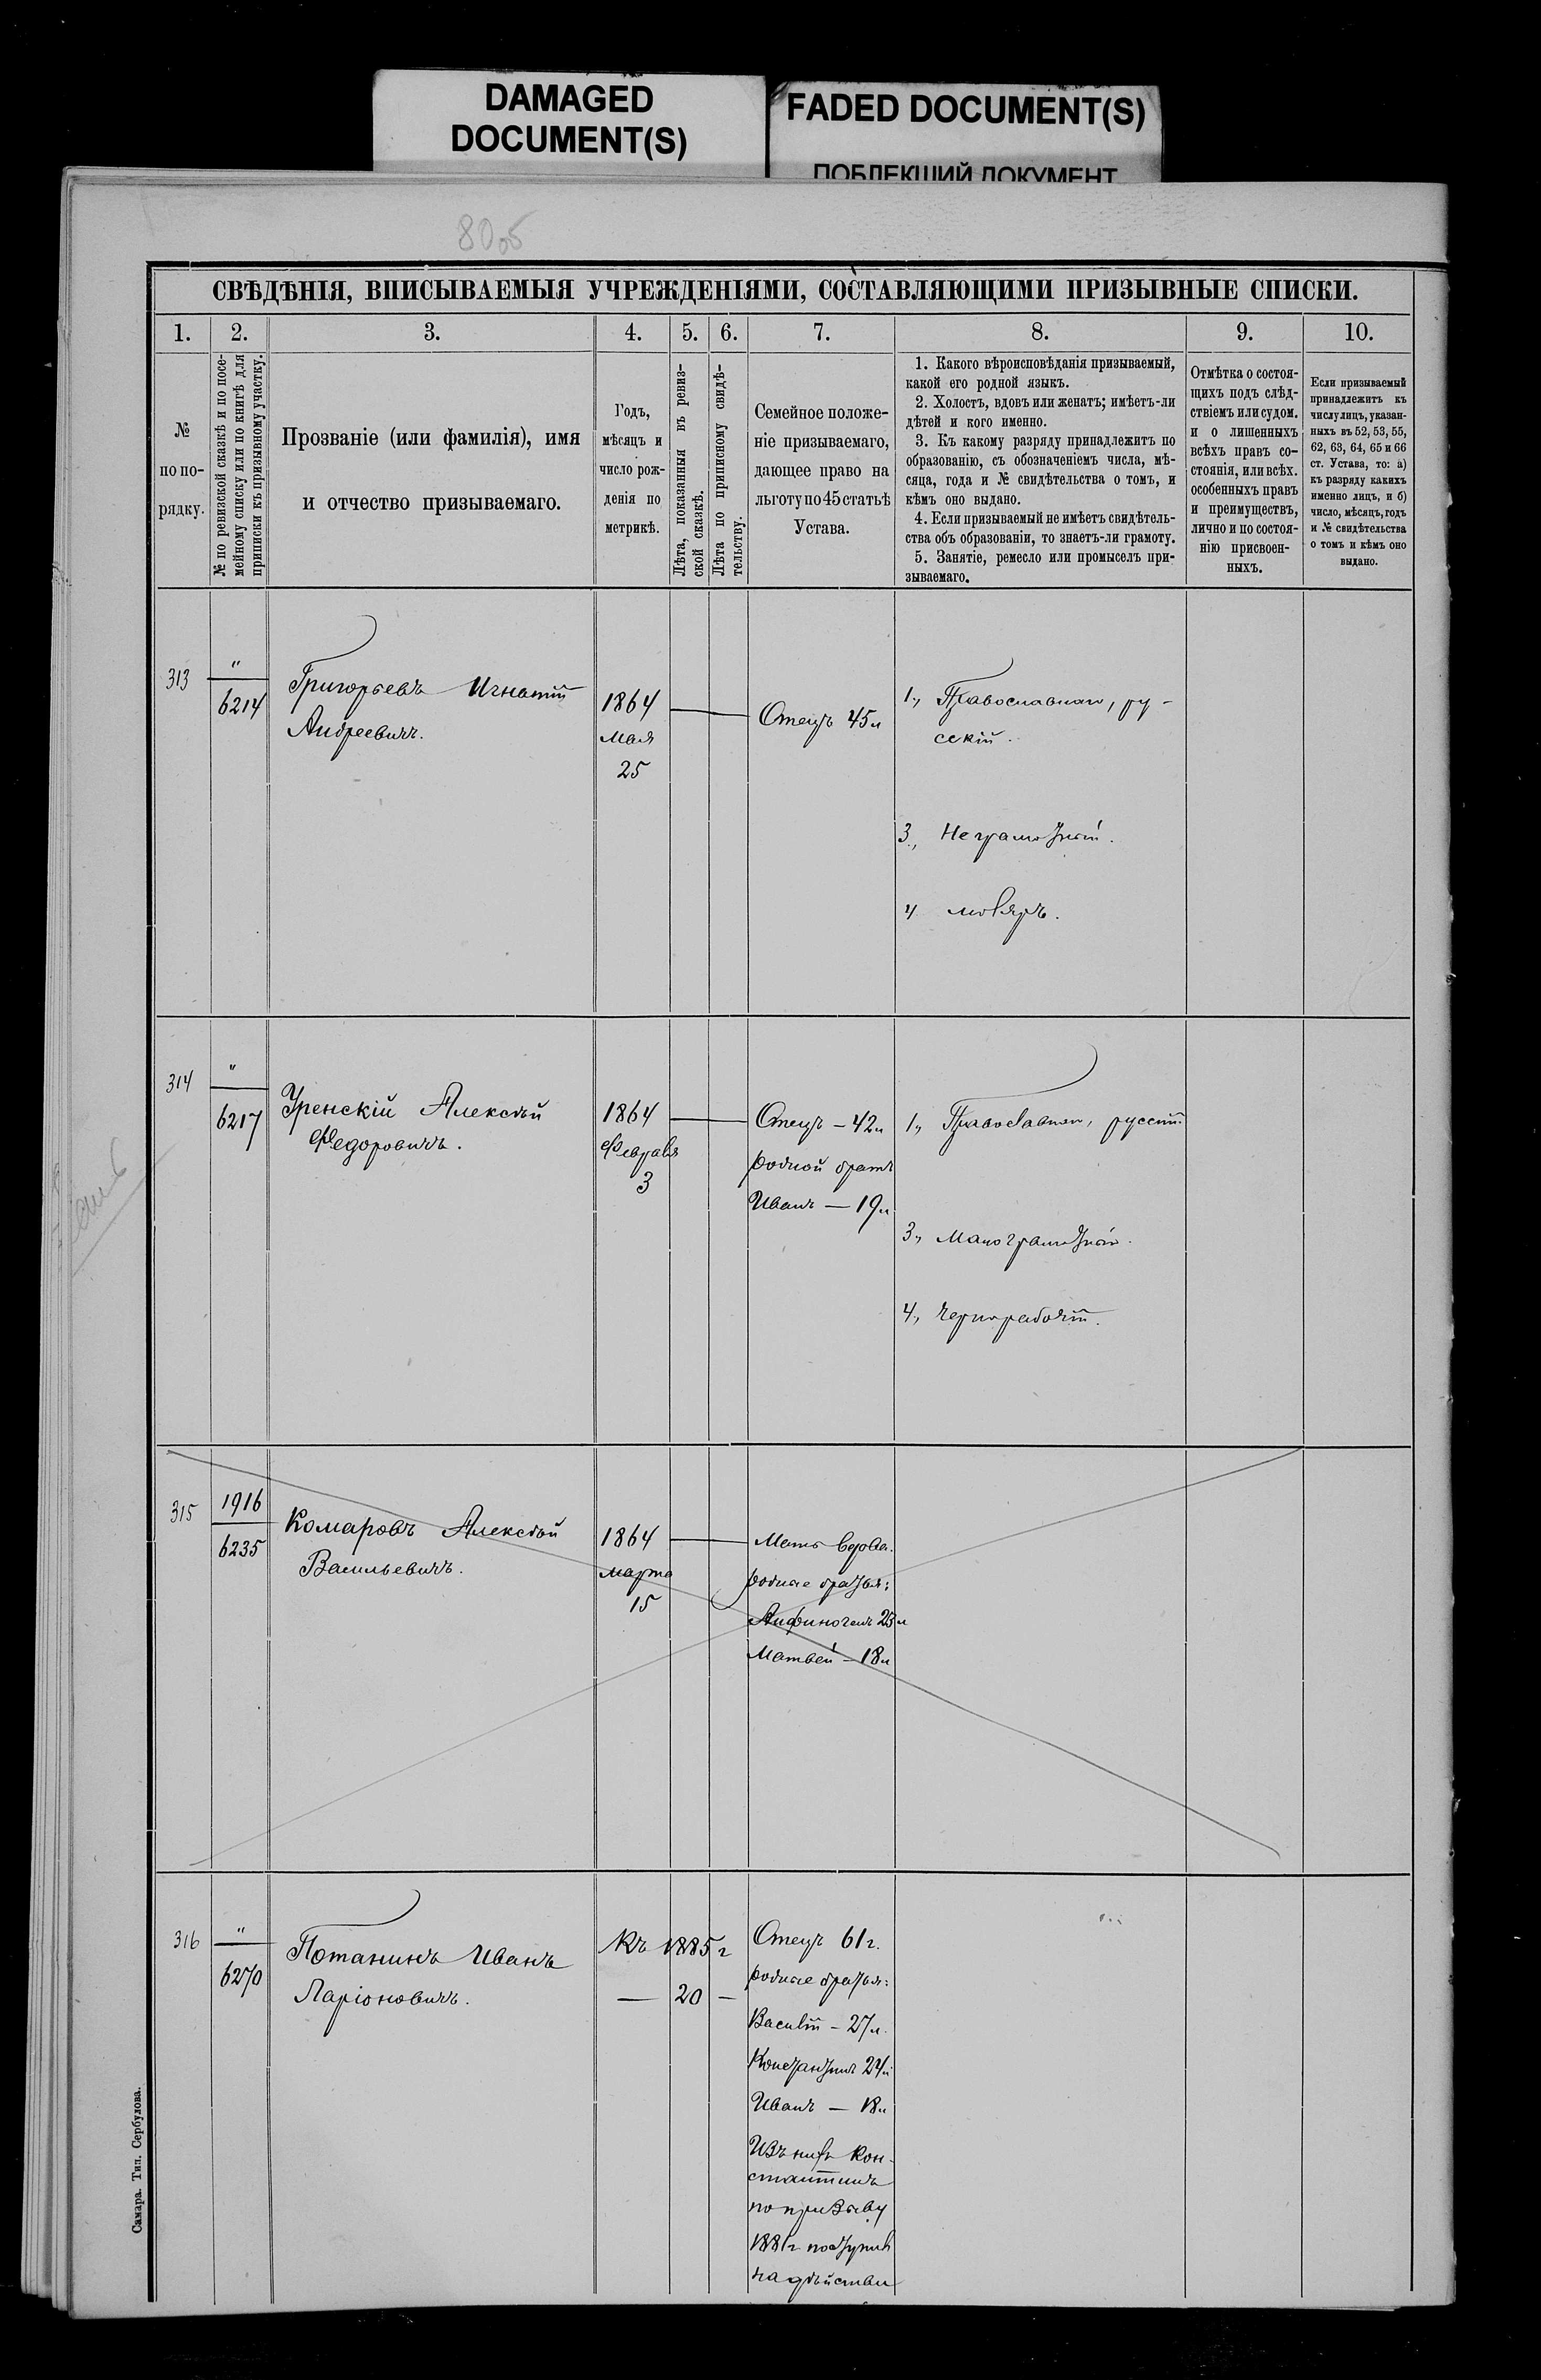 DAMAGED
DOCUMENT(S)
FADED DOCUMENT(S)
ПОБЛЕКШИЙ ДОКУМЕНТ
80об
СВѢДѢНІЯ, ВПИСЫВАЕМЫЯ УЧРЕЖДЕНІЯМИ, СОСТАВЛЯЮЩИМИ ПРИЗЫВНЫЕ СПИСКИ.
1. 2. 3. 4. 5. 6. 7. 8. 9. 10.
№
по по-
рядку.
№ по ревизской сказкѣ и по посе-
мейному списку или по книгѣ для
приписки къ призывному участку.
Прозваніе (или фамилія), имя
и отчество призываемаго.
Годъ,
мѣсяцъ и
число рож-
денія по
метрикѣ.
Лѣта, показанныя въ ревиз-
ской сказкѣ.
Лѣта по приписному свидѣ-
тельству.
Семейное положе-
ніе призываемаго,
дающее право на
льготу по 45 статьѣ
Устава.
1. Какого вѣроисповѣданія призываемый,
какой его родной языкъ.
2. Холостъ, вдовъ или женатъ; имѣетъ-ли
дѣтей и кого именно.
3. Къ какому разряду принадлежитъ по
образованію, съ обозначеніемъ числа, мѣ-
сяца, года и № свидѣтельства о томъ, и
кѣмъ оно выдано.
4. Если призываемый не имѣетъ свидѣтель-
ства объ образованіи, то знаетъ-ли грамоту.
5. Занятіе, ремесло или промыселъ при-
зываемаго.
Отмѣтка о состоя-
щихъ подъ слѣд-
ствіемъ или судом.
и о лишенныхъ
всѣхъ правъ со-
стоянія, или всѣх.
особенныхъ правъ
и преимуществъ,
лично и по состоя-
нію присвоен-
ныхъ.
Если призываемый
принадлежитъ къ
числу лицъ, указан-
ныхъ въ 52, 53, 55,
62, 63, 64, 65 и 66
ст. Устава, то: а)
къ разряду какихъ
именно лицъ, и б)
число, мѣсяцъ, годъ
и № свидѣтельства
о томъ и кѣмъ оно
выдано.
313
"
6214
Григорьевъ Игнатій
Андреевичъ.
1864
мая
25
Отецъ 45 л
1., Православнаго, ру-
сскій.
3., Неграмотный.
4 моляръ.
314
"
6217
Уренскій Алексѣй
Федоровичъ.
1864
Февраля
3
Отецъ – 42 л
родной братъ
Иванъ – 19 л
1., Православнаго, русскій.
3., Малограмотный.
4., Чернорабочій.
315
1916
6235
Комаровъ Алексѣй
Васильевичъ.
1864
марта
15
Мать вдова.
родные братья:
23 л
Матвей – 18 л
316
"
6270
Потанинъ Иванъ
Ларіоновичъ.
Къ 1885 г
— 20 —
Отецъ 61 г.
родные братья:
Василій – 27 л.
Константинъ 24 л
Иванъ – 18 л
Изъ нихъ Кон-
стантинъ
по призыву
1881 г поступилъ
на дѣйстви
Самара. Тип. Сербулова.